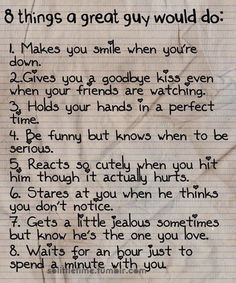 8 things a great guy would do:
1. Makes you smile when you're
down.
2.Gives you a goodbye kiss even
when your friends are watching.
3. Holds your hands in a perfect
time.
4. Be funny but knows when to be
serious.
5. Reacts so cutely when you hit
him though it actually hurts.
6. Stares at you when he thinks
you don't notice.
7. Gets a little jealous sometimes
but know he's the one you love.
8. Waits for an hour just to
spend a minute with you.